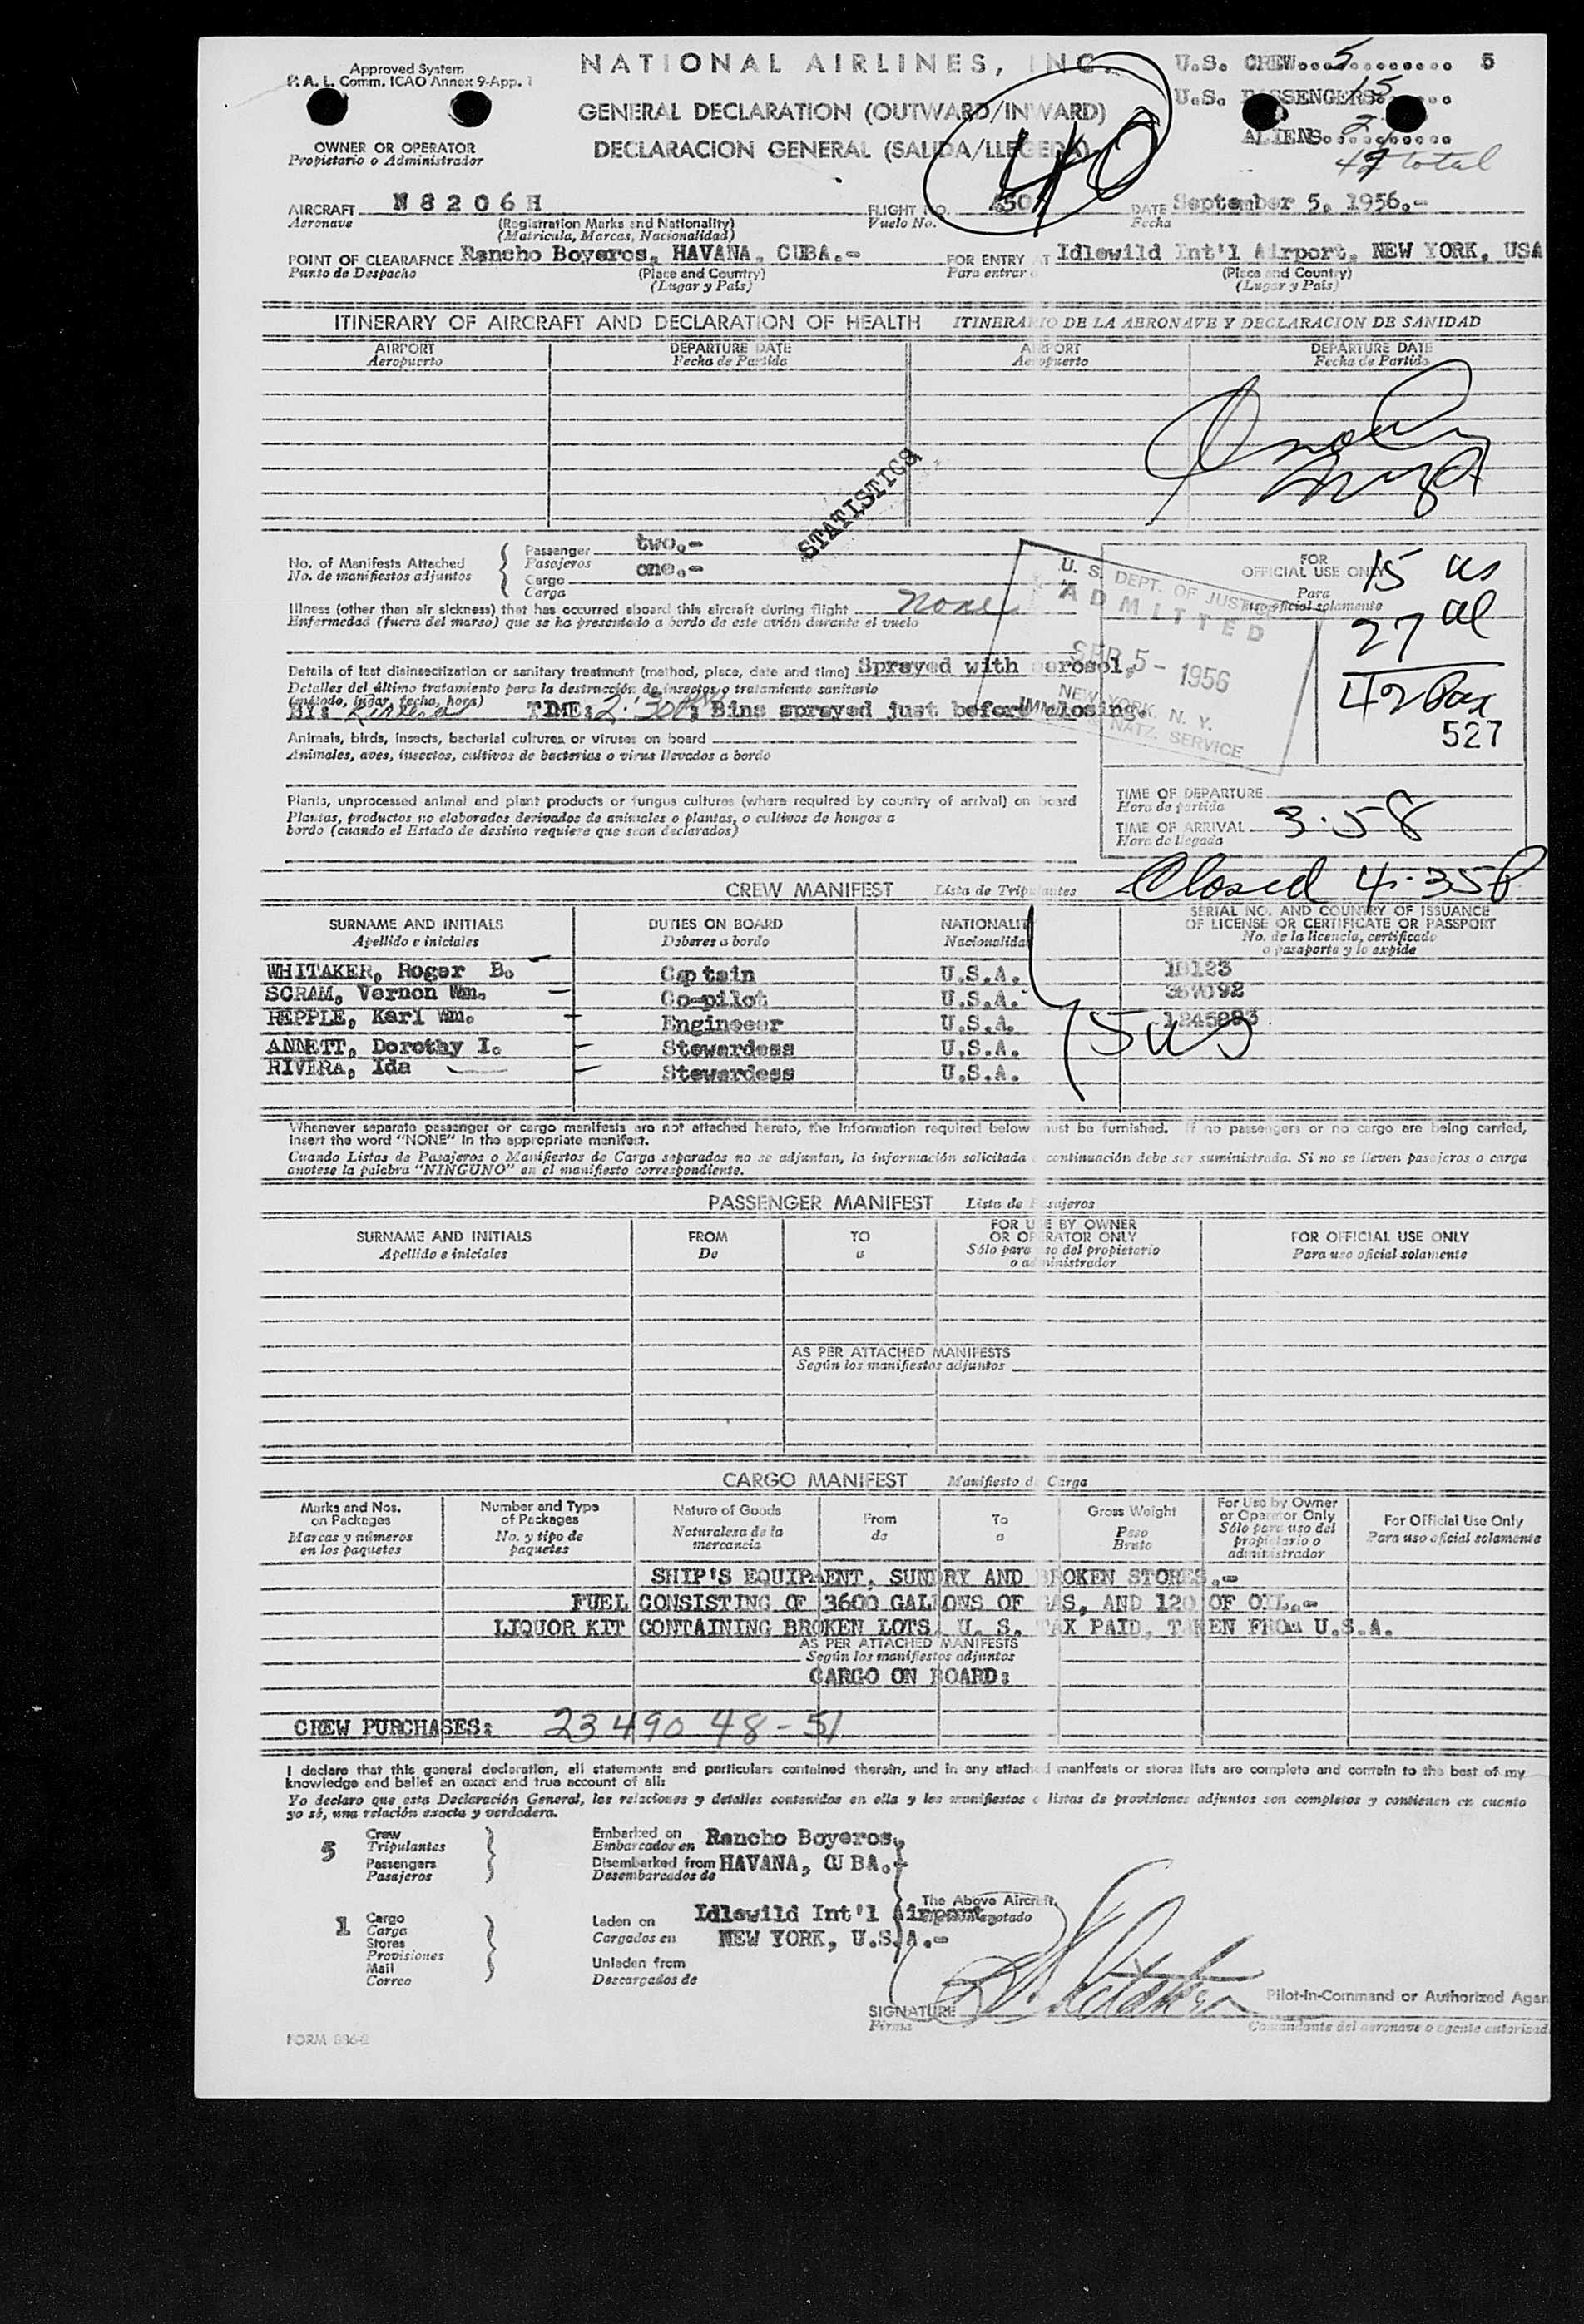 Approved System
F. A. L. Comm. ICAO Annex 9-App. 1
NATIONAL AIRLINES, INC.
U.S. CREW...5......... 5
GENERAL DECLARATION (OUTWARD/INWARD)
U.S. PASSENGERS. 15
OWNER OR OPERATOR
Propietario o Administrador
DECLARACION GENERAL (SALIDA/LLEGEDA)
40
ALIENS
42 total
AIRCRAFT N8206H
Aeronave
(Registration Marks and Nationality)
(Matricula, Marcas, Nacionalidad)
FLIGHT NO.
Vuelo No.
DATE September 5, 1956.-
Fecha
POINT OF CLEARAFNCE Rancho Boyeros, HAVANA, CUBA.-
Punto de Despacho
(Place and Country)
(Lugar y Pais)
FOR ENTRY AT Idlewild Int'l Airport, NEW YORK, USA
Para entrar
(Place and Country)
(Lugar y Pais)
ITINERARY OF AIRCRAFT AND DECLARATION OF HEALTH ITINERARIO DE LA AERONAVE Y DECLARACION DE SANIDAD
AIRPORT DEPARTURE DATE AIRPORT DEPARTURE DATE
Aeropuerto Fecha de Partida Aeropuerto Fecha de Partida
STATISTICS
No. of Manifests Attached
No. de manifiestos adjuntos
Passenger two.-
Pasajeros
Cargo one.-
Carga
Illness (other than air sickness) that has occurred aboard this aircraft during flight None
Enfermedad (fuera del marso) que se ha presentado a bordo de este avión durante el vuelo
Details of last disinsectization or sanitary treatment (method, place, date and time) Sprayed with aerosol,
Detalles del último tratamiento para la destrucción de insectos o tratamiento sanitario
(método, lugar, fecha, hora)
BY: TIME: 2:30 PM; Bins sprayed just before closing.
Animals, birds, insects, bacterial cultures or viruses on board
Animales, aves, insectos, cultivos de bacterias o virus llevados a bordo
Plants, unprocessed animal and plant products or fungus cultures (where required by country of arrival) on board
Plantas, productos no elaborados derivados de animales o plantas, o cultivos de hongos a
bordo (cuando el Estado de destino requiere que sean declarados)
U. S. DEPT. OF JUSTICE
ADMITTED
SEP 5 - 1956
NEW YORK, N. Y.
IMM. & NATZ. SERVICE
FOR
OFFICIAL USE ONLY
Para
uso oficial solamente
15 us
27 al
42 Pax
527
TIME OF DEPARTURE
Hora de partida
TIME OF ARRIVAL 3:58
Hora de llegada
Closed 4:35 P
CREW MANIFEST Lista de Tripulantes
SURNAME AND INITIALS DUTIES ON BOARD NATIONALITY SERIAL NO. AND COUNTRY OF ISSUANCE
OF LICENSE OR CERTIFICATE OR PASSPORT
Apellido e iniciales Deberes a bordo Nacionalidad No. de la licencia, certificado
o pasaporte y lo expide
WHITAKER, Roger B. Captain U.S.A. 10123
SCRAM, Vernon Wm. Co-pilot U.S.A. 367092
HEPPLE, Karl Wm. Engineer U.S.A.
ANNETT, Dorothy I. Stewardess U.S.A.
RIVERA, Ida Stewardess U.S.A.
5 us
Whenever separate passenger or cargo manifests are not attached hereto, the information required below must be furnished. If no passengers or no cargo are being carried,
insert the word "NONE" in the appropriate manifest.
Cuando Listas de Pasajeros o Manifiestos de Carga separados no se adjuntan, la información solicitada a continuación debe ser suministrada. Si no se lleven pasajeros o carga
anotese la palabra "NINGUNO" en el manifiesto correspondiente.
PASSENGER MANIFEST Lista de Pasajeros
SURNAME AND INITIALS FROM TO FOR USE BY OWNER
OR OPERATOR ONLY FOR OFFICIAL USE ONLY
Apellido e iniciales De a Sólo para uso del propietario
o administrador Para uso oficial solamente
AS PER ATTACHED MANIFESTS
Según los manifiestos adjuntos
CARGO MANIFEST Manifiesto de Carga
Marks and Nos.
on Packages
Marcas y números
en los paquetes
Number and Type
of Packages
No. y tipo de
paquetes
Nature of Goods
Naturalesa de la
mercancia
From
de
To
a
Gross Weight
Peso
Bruto
For Use by Owner
or Operator Only
Sólo para uso del
propietario o
administrador
For Official Use Only
Para uso oficial solamente
SHIP'S EQUIPMENT, SUNDRY AND BROKEN STORES.-
FUEL CONSISTING OF 3600 GALLONS OF GAS, AND 120 OF OIL.-
LIQUOR KIT CONTAINING BROKEN LOTS. U. S. TAX PAID, TAKEN FROM U.S.A.
AS PER ATTACHED MANIFESTS
Según los manifiestos adjuntos
CARGO ON BOARD:
CREW PURCHASES: 23490 48-51
I declare that this general declaration, all statements and particulars contained therein, and in any attached manifests or stores lists are complete and contain to the best of my
knowledge and belief an exact and true account of all:
Yo declaro que esta Declaración General, las relaciones y detalles contenidos en ella y los manifiestos o listas de provisiones adjuntos son completos y contienen en cuanto
yo sé, una relación exacta y verdadera.
5
Crew
Tripulantes
Passengers
Pasajeros
Embarked on Rancho Boyeros,
Embarcados en
Disembarked from HAVANA, CUBA.-
Desembarcados de
1
Cargo
Carga
Stores
Provisiones
Mail
Correo
Laden on Idlewild Int'l Airport
Cargados en NEW YORK, U.S.A.-
Unladen from
Descargados de
The Above Aircraft,
SIGNATURE
Firma
Pilot-in-Command or Authorized Agen
Comandante del aeronave o agente autorizad
FORM 886-2